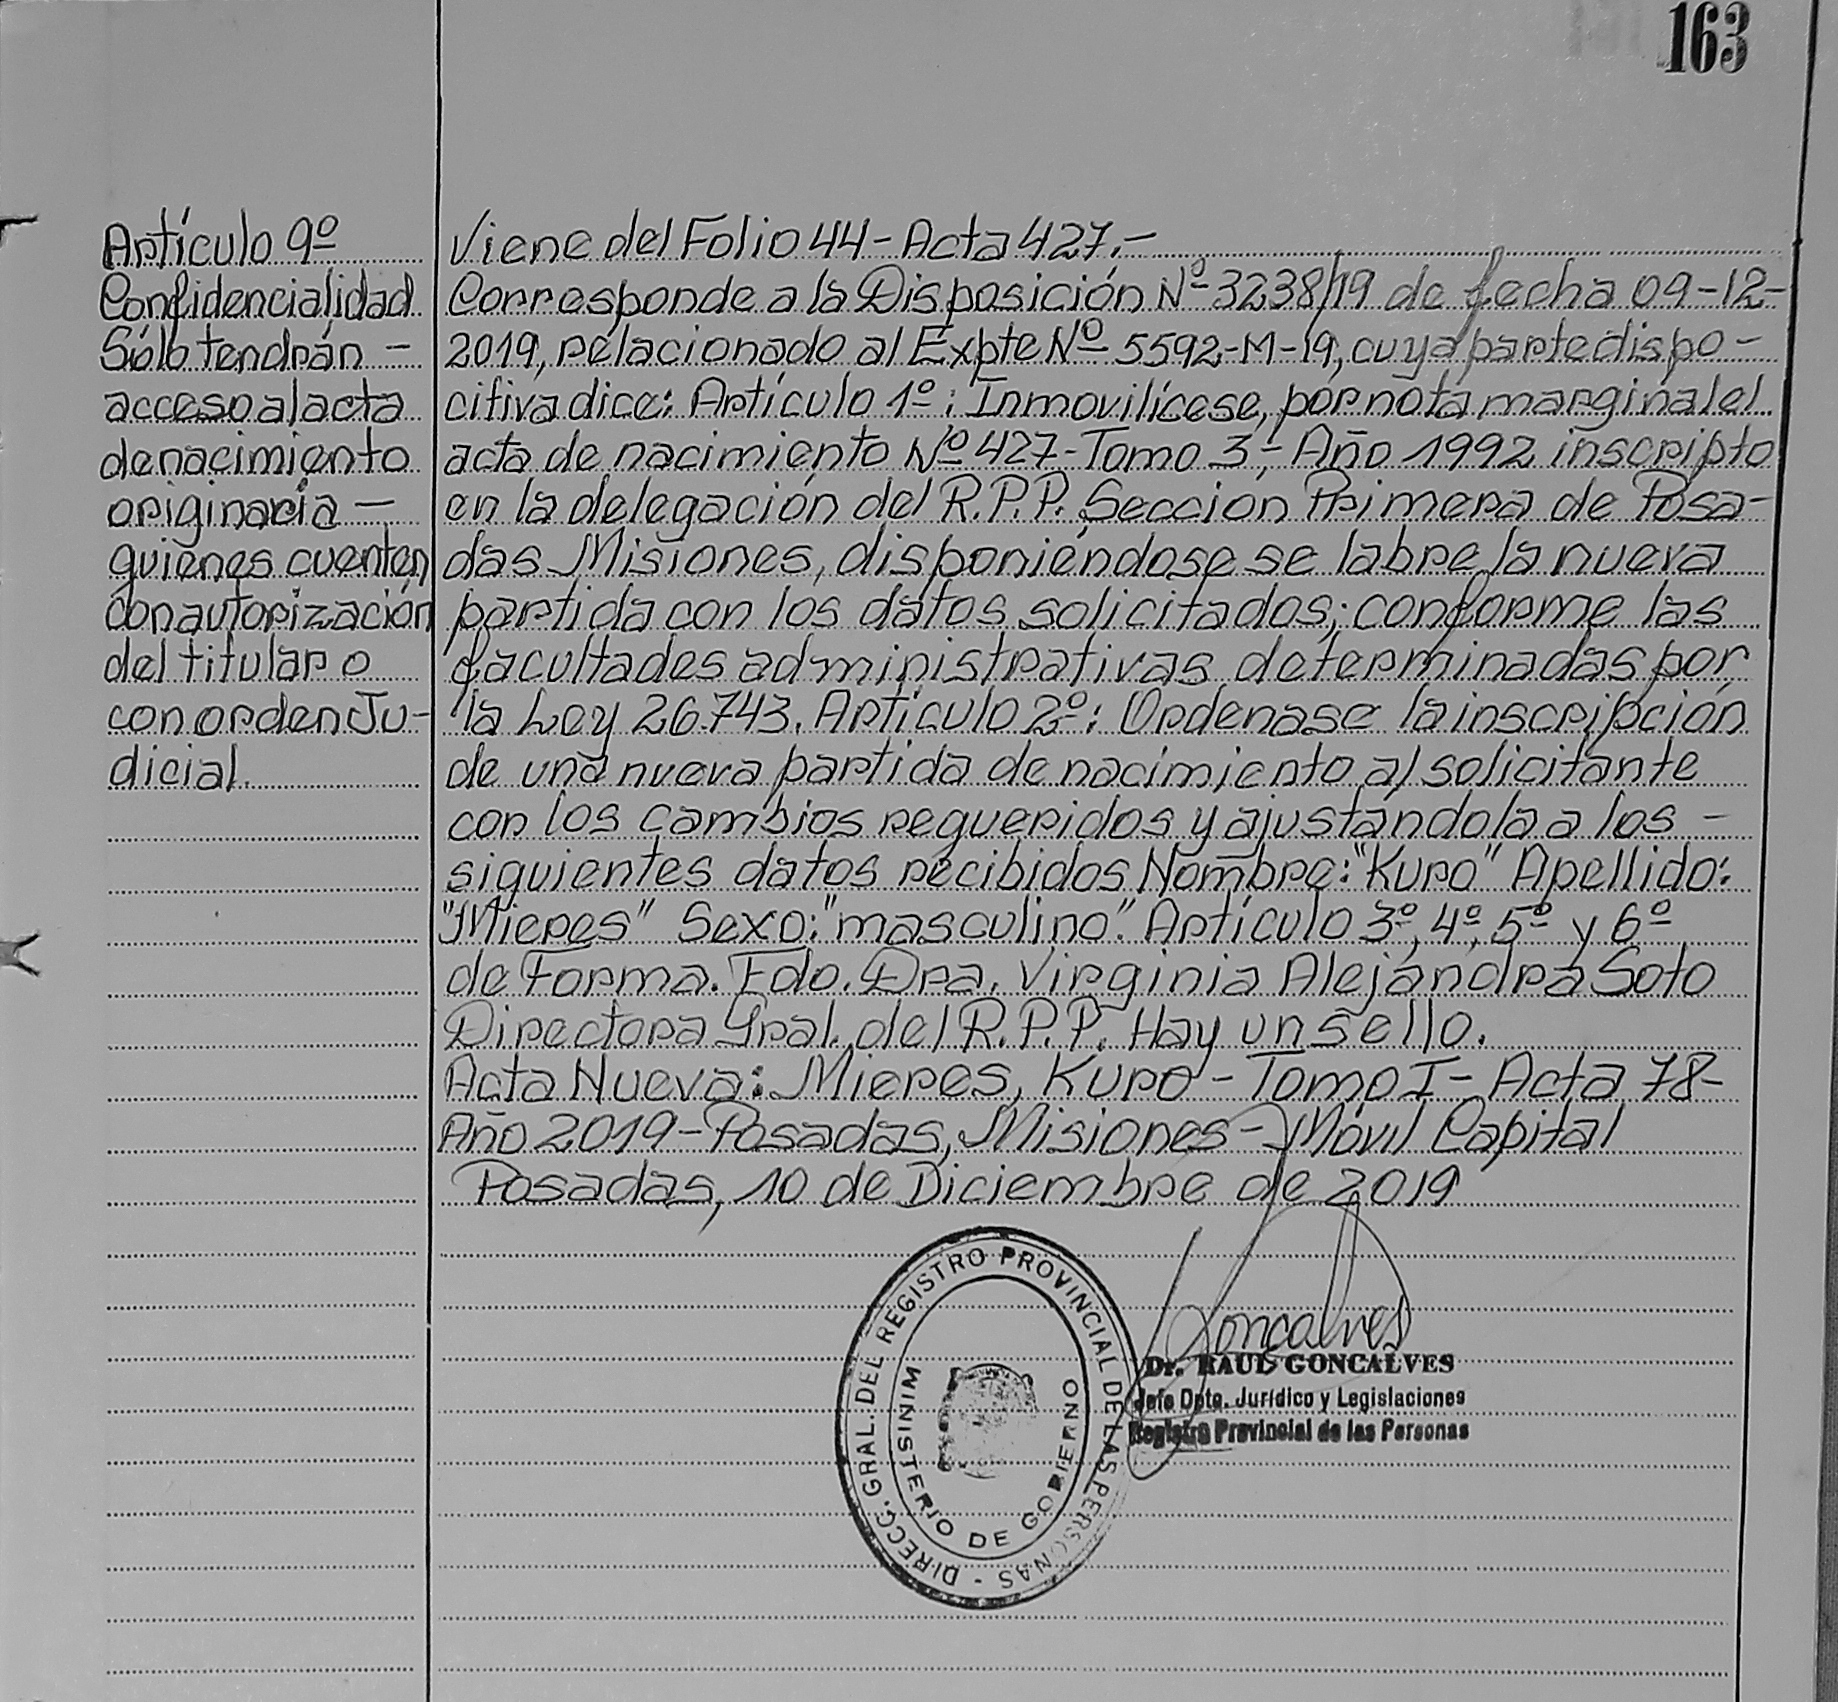 163
Artículo 9º
Confidencialidad
Sólo tendrán -
acceso al acta
de nacimiento
originaria -
quienes cuenten
con autorización
del titular o
con orden Ju-
dicial.
Viene del Folio 44 - Acta 427.-
Corresponde a la Disposición Nº 3238/19 de fecha 09-12-
2019, relacionado al Expte Nº 5592-M-19, cuya parte dispo-
citiva dice: Artículo 1º: Inmovilícese, por nota marginal el
acta de nacimiento Nº 427-Tomo 3,- Año 1992 inscripto
en la delegación del R.P.P. Sección Primera de Posa-
das Misiones, disponiéndose se labre la nueva
partida con los datos solicitados; conforme las
facultades administrativas determinadas por
la Ley 26.743. Artículo 2º: Ordenase la inscripción
de una nueva partida de nacimiento al solicitante
con los cambios requeridos y ajustándola a los -
siguientes datos recibidos Nombre: "Kuro" Apellido:
"Mieres" Sexo: "masculino". Artículo 3º, 4º, 5º y 6º
de Forma. Fdo. Dra. Virginia Alejandra Soto
Directora Gral. del R.P.P. Hay un sello.
Acta Nueva: Mieres, Kuro - Tomo I - Acta 78-
Año 2019 - Posadas, Misiones - Móvil Capital
Posadas, 10 de Diciembre de 2019
DIRECC. GRAL. DEL REGISTRO PROVINCIAL DE LAS PERSONAS -
MINISTERIO DE GOBIERNO
Goncalves
Dr. RAUL GONCALVES
Jefe Dpto. Jurídico y Legislaciones
Registro Provincial de las Personas